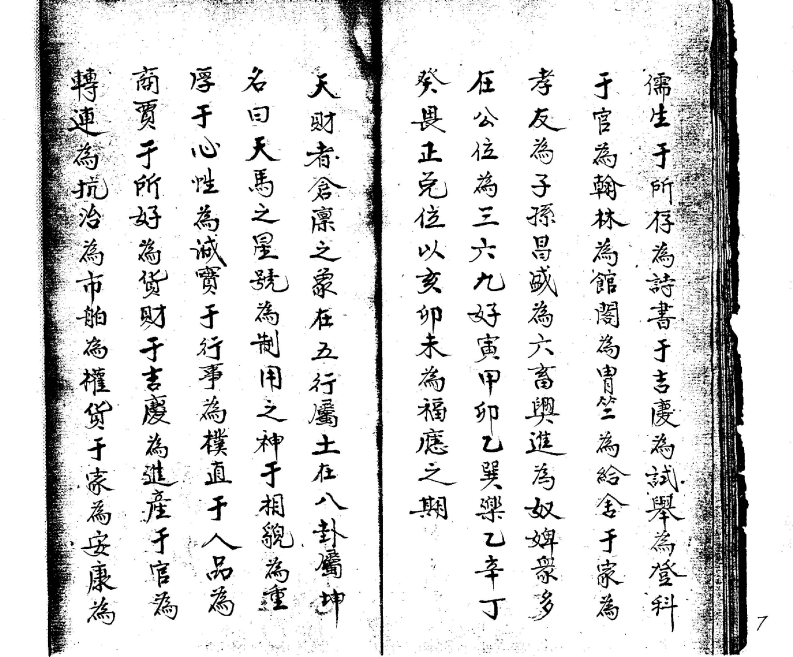 儒生于所存為詩書于吉慶為試舉為登科
于官為翰林為館閣為冑竺為給舍于家為
孝友為子孫昌盛為六畜興進為奴婢眾多
在公位為三六九好寅甲卯乙巽樂乙辛丁
癸畏正兌位以亥卯未為福應之期
天財者倉廩之象在五行屬土在八卦屬坤
名曰天馬之星號為制用之神于相貌為重
厚于心性為誠實于行事為樸直于人品為
商賈于所好為貨財于吉慶為進產于官為
轉連為抗治為市舶為權貨于家為安康為
7